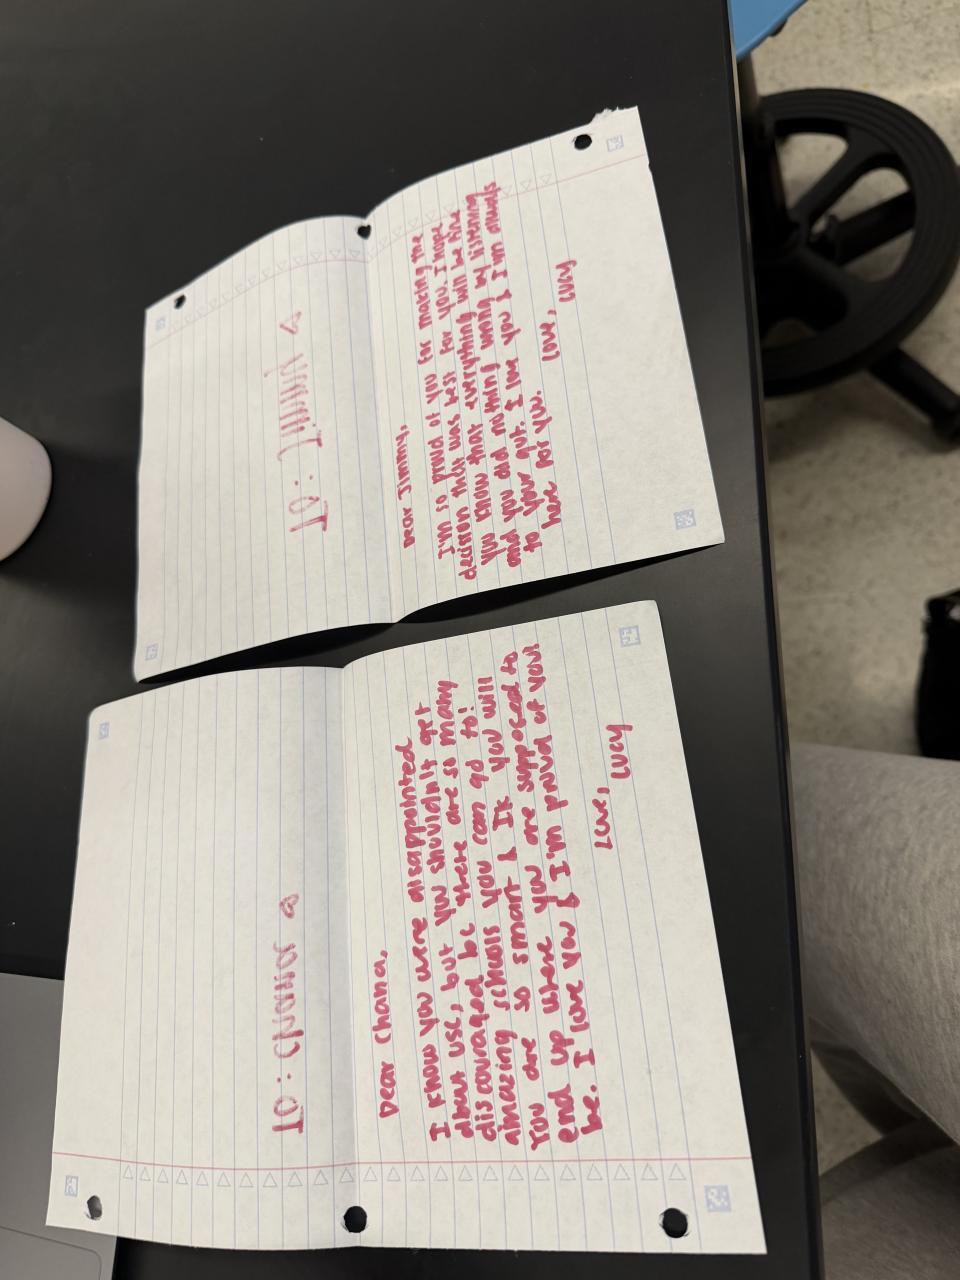 TO: Jimmy
Dear Jimmy,
I'm so proud of you for making the
decision that was best for you. I hope
you know that everything will be fine
and you did nothing wrong by listening
to your gut. I love you & I'm always
here for you.
Love,
Lucy
TO: Chana
Dear Chana,
I know you were disappointed
about USC, but you shouldn't get
discouraged bc there are so many
amazing schools you can go to!
You are so smart & Ik you will
end up where you are supposed to
be. I love you & I'm proud of you!
Love,
Lucy